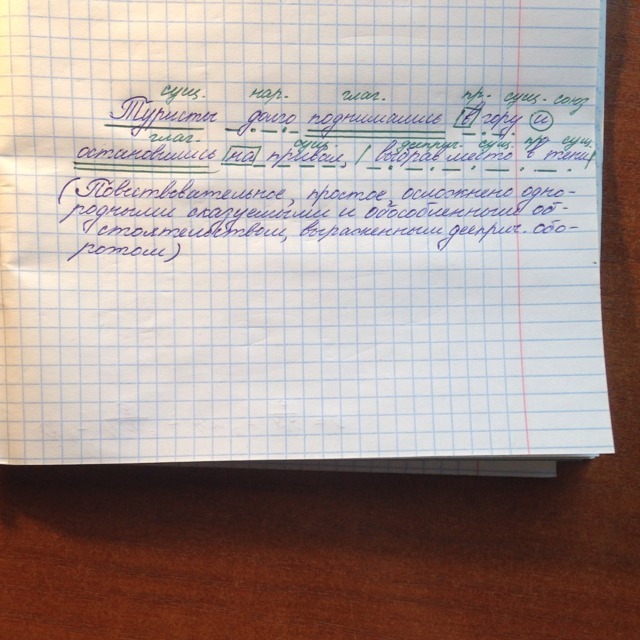 сущ. нар. глаг. пр. сущ. союз
Туристы долго поднимались в гору и
глаг. сущ. дееприч. сущ. пр. сущ.
остановились на привал, выбрав место в тени
(Повествовательное, простое, осложнено одно-
родными сказуемыми и обособленным об-
стоятельством, выраженным дееприч. обо-
ротом)